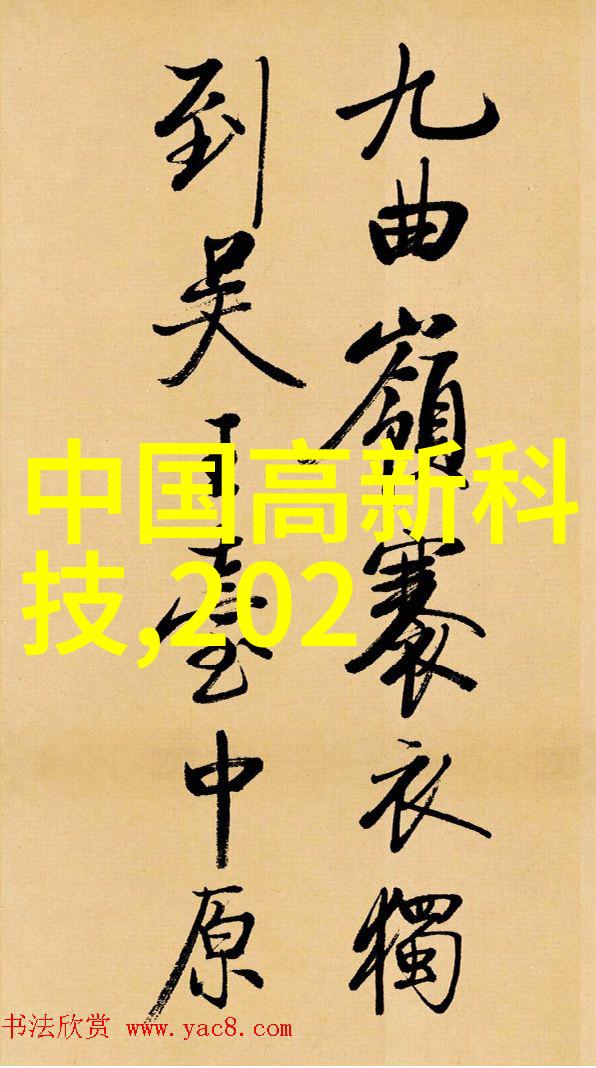 九曲嶺褰衣獨
到吳王臺中原
中国高新科
技,202
书法欣赏 www.yac8.com